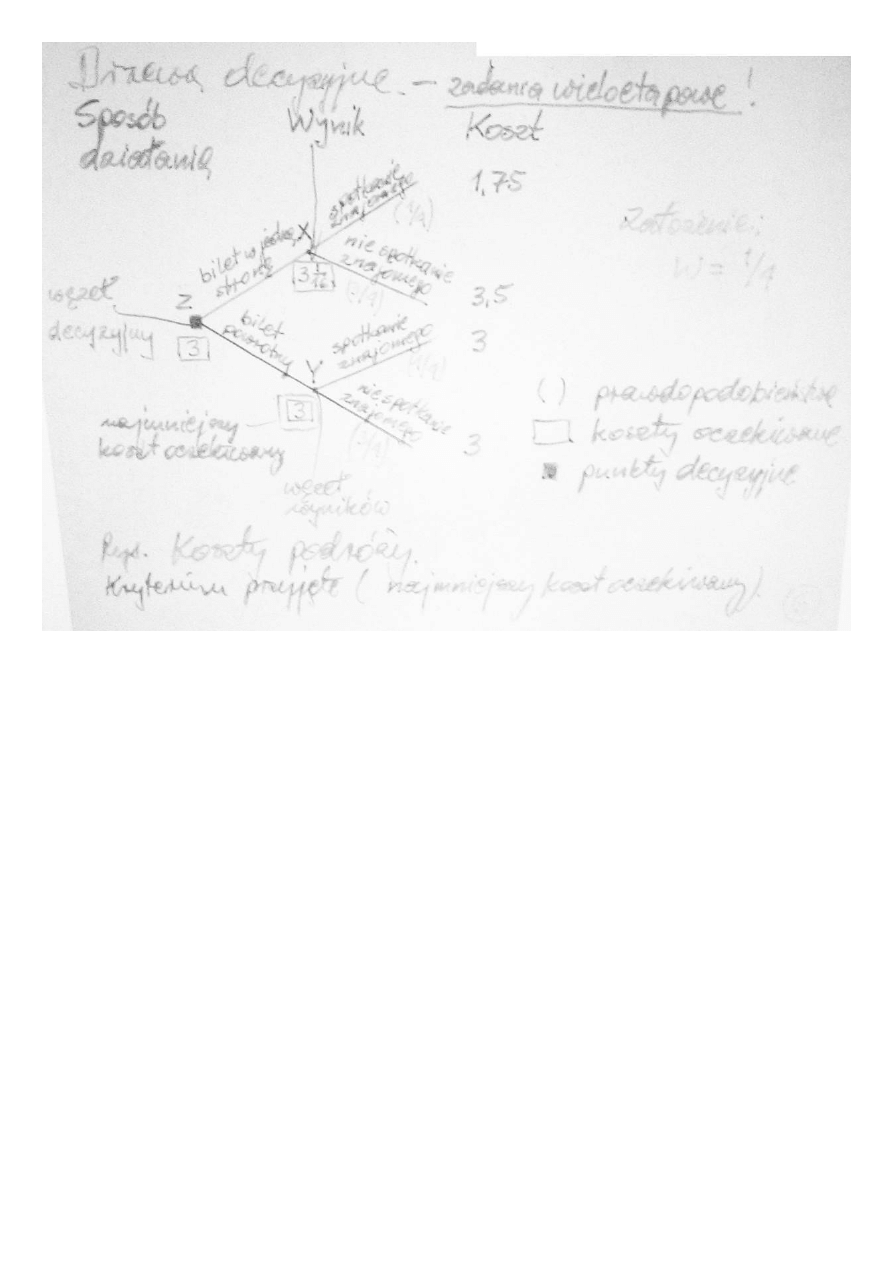 Drzewa decyzyjne. – zadania wieloetapowe!
Sposób działania
Wynik
Koszt
spotkanie znajomego
(1/4)
1,75
Założenie:
W = 1/4
bilet w jedną stronę
X
3 1/16
nie spotkanie znajomego
3,5
węzeł decyzyjny
Z
3
bilet powrotny
Y
spotkanie znajomego
(1/4)
3
3
nie spotkanie znajomego
(3/4)
3
najmniejszy koszt oczekiwany
węzeł wyników
( ) prawdopodobieństwa
koszty oczekiwane
punkty decyzyjne
Rys. Koszty podróży.
Kryterium przyjęte (najmniejszy koszt oczekiwany).